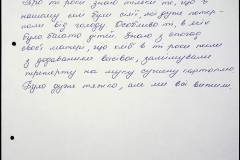 Про ті роки знаю тільки те, що в
нашому селі були сім'ї, які дуже потер-
пали від голоду. Особливо ті, в яких
було багато дітей. Знаю з спогад
своєї матері, що хліб в ті роки пекли
з додаванням висівок, залишували
перетерту на муку сушену картоплю
Було дуже тяжко, але ми всі вижили.